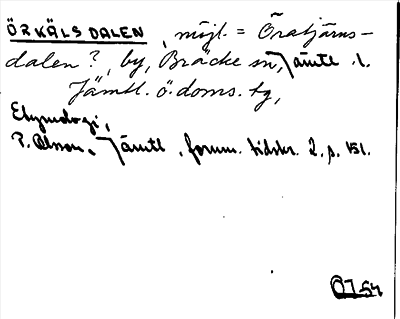 ÖRKÄLSDALEN, möjl. = Öratjärns-
dalen?, by, Bräcke sn, Jämtl. l.
Jämtl. ö. doms. tg,
Etymologi,
P. Olsson, Jämtl. fornm. tidskr. 2, s. 151.
ÖJ 54